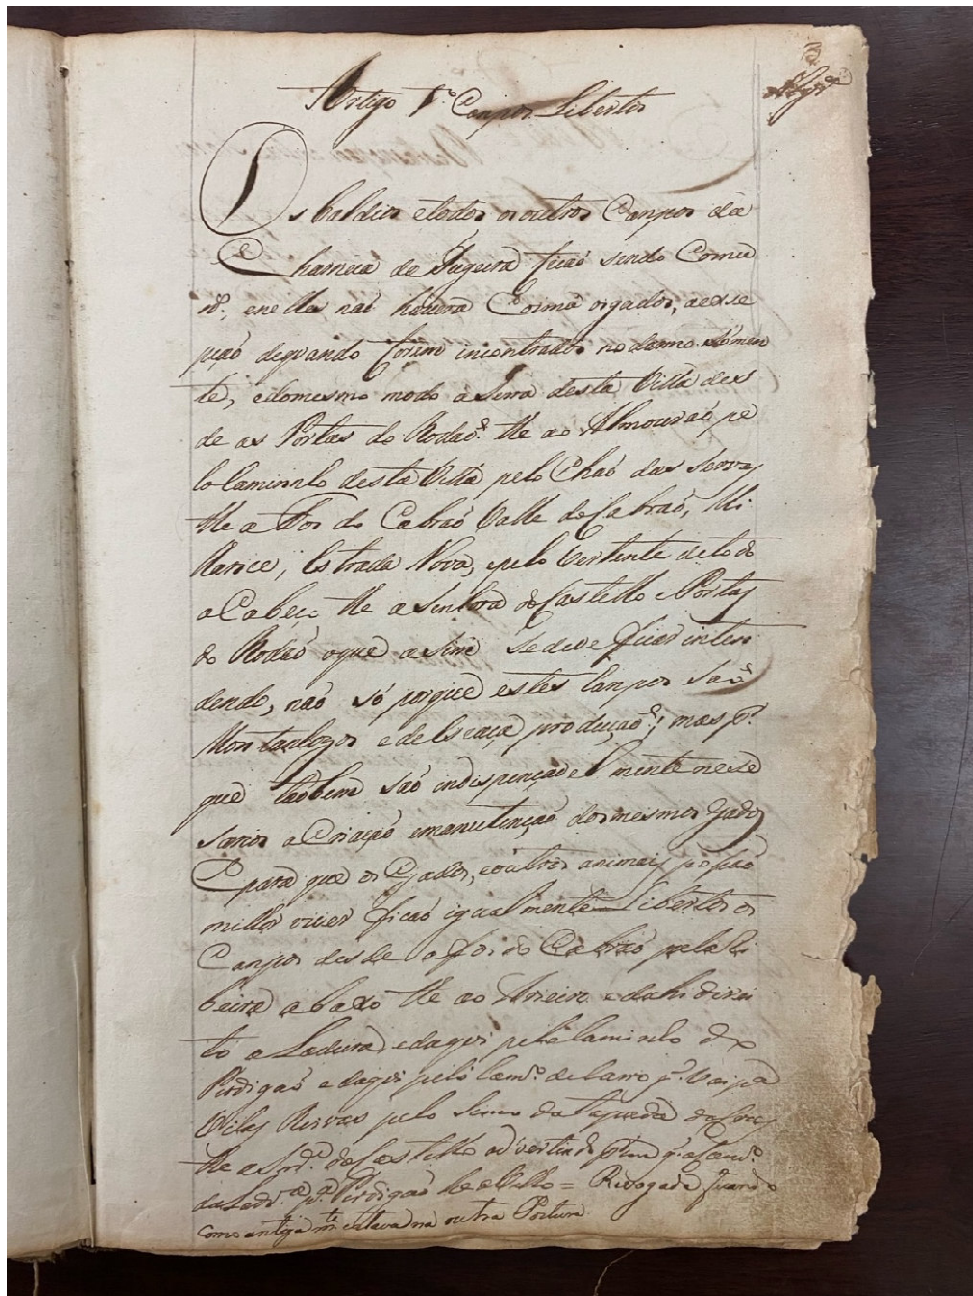 3
Artigo 1º Campos Libertos
Os baldios e todos os outros Campos da
Charneca de ficaõ sendo Comu
ns, e nella naõ haverá Coima os gados, a exse
pçaõ de quando forem incontrados no damno sómen
te, e do mesmo modo a Serra desta Villa des
de as Portas do Rodaõ the ao Almouraõ, pe
lo Caminho desta Villa pelo Chaõ das Servas
the a Fos do Cobraõ Valle do Cobraõ,
Estrada Nova, e pelo Vertente de todo
o Cabeço the a Sinhora do Castello e Portas
do Rodaõ o que asim se deve ficar inten
dendo, naõ só porque estes Campos saõ
Montanhozos e de Escaça produçaõ; mas pr
que taõbem saõ indispençavel mente nese
sarios a Criaçaõ e manutençaõ dos mesmos Gados
E para que os Gados, e outros animais posaõ
milhor viver ficaõ igualmente Libertos os
Campos desde a Fos do Cobraõ pela Ri
beira abaxo the ao e dahi direi
to a e daqui pelo Caminho do
Perdigaõ e daqui pelo Camº de Carro pª
Vilas Ruivas pelo da
the a Srª do Castello advertindo
pª Perdigaõ he = Revogada ficando
como antiga mte estava na outra Postura